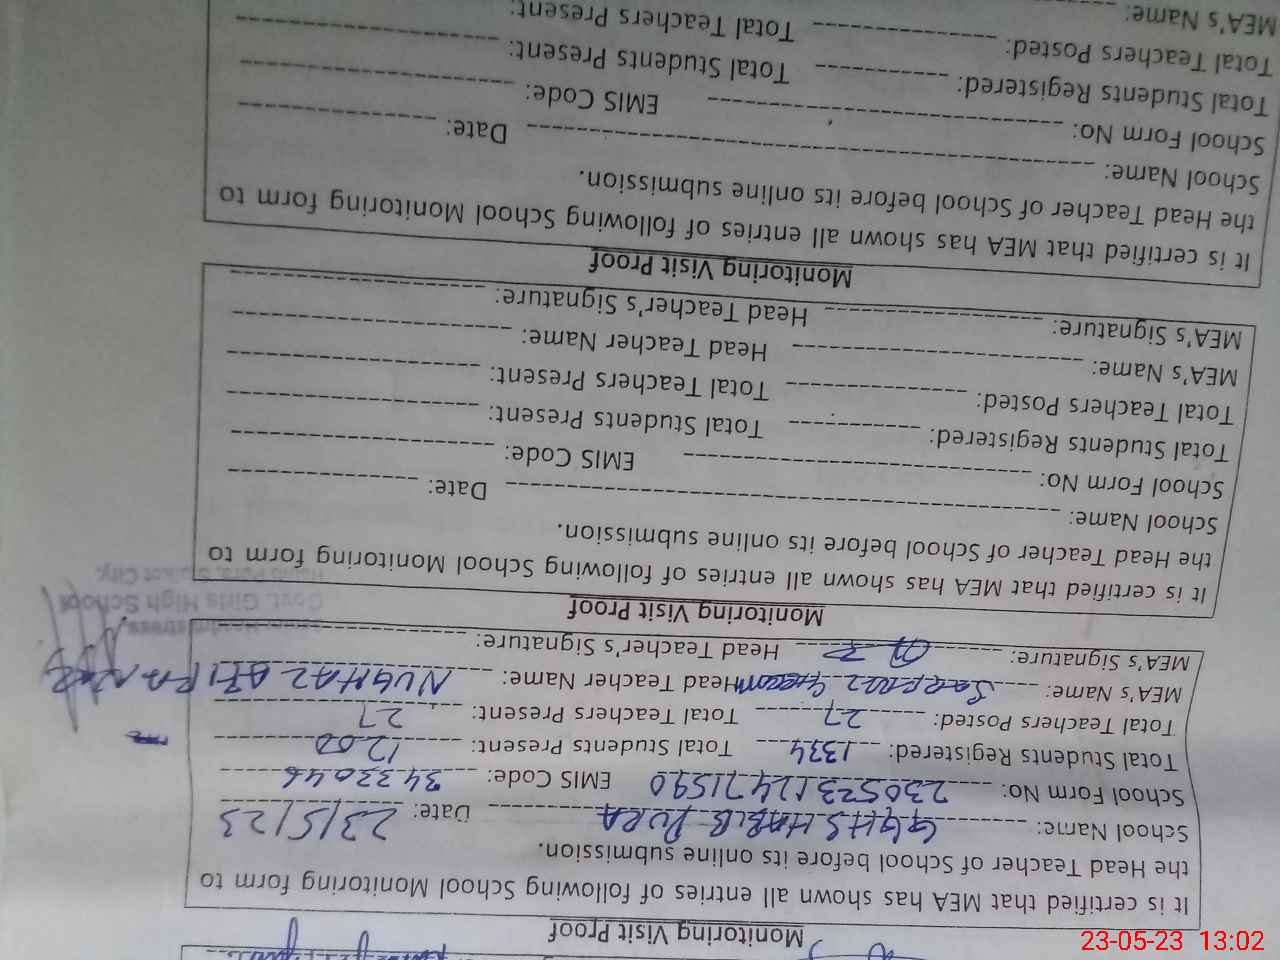 Monitoring Visit Proof
It is certified that MEA has shown all entries of following School Monitoring form to
the Head Teacher of School before its online submission.
School Name: GGHS HABIB PURA Date: 23/5/23
School Form No: 230523112471590 EMIS Code: 3433046
Total Students Registered: 1334 Total Students Present: 1200
Total Teachers Posted: 27 Total Teachers Present: 27
MEA's Name: Sarfraz Head Teacher Name: NUGHAZ
MEA's Signature: Head Teacher's Signature:
Headmistress
Govt. Girls High School
Habib Pura, Sialkot City.
Monitoring Visit Proof
It is certified that MEA has shown all entries of following School Monitoring form to
the Head Teacher of School before its online submission.
School Name: Date:
School Form No: EMIS Code:
Total Students Registered: Total Students Present:
Total Teachers Posted: Total Teachers Present:
MEA's Name: Head Teacher Name:
MEA's Signature: Head Teacher's Signature:
Monitoring Visit Proof
It is certified that MEA has shown all entries of following School Monitoring form to
the Head Teacher of School before its online submission.
School Name: Date:
School Form No: EMIS Code:
Total Students Registered: Total Students Present:
Total Teachers Posted: Total Teachers Present:
MEA's Name:
23-05-23 13:02